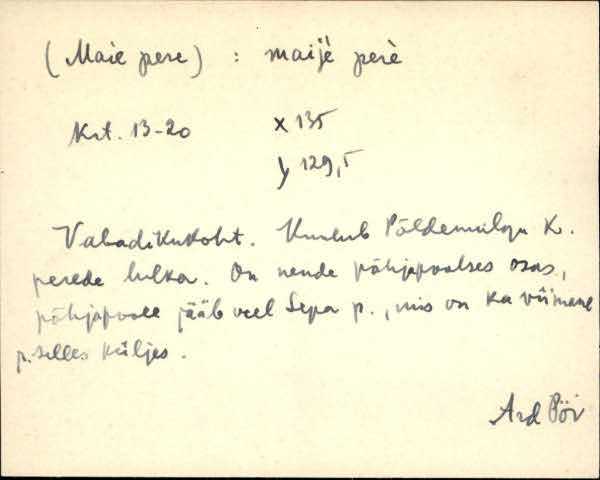 (Maie pere) : maijè perè
Krt. 13-20 x 135
y 129,5
Vabadikukoht. Kuulub Põldemülga K.
perede hulka. On nende põhjapoolses osas,
põhjapoole jääb veel Sepa p., mis on ka viimane
p. selles küljes.
Ard Pör